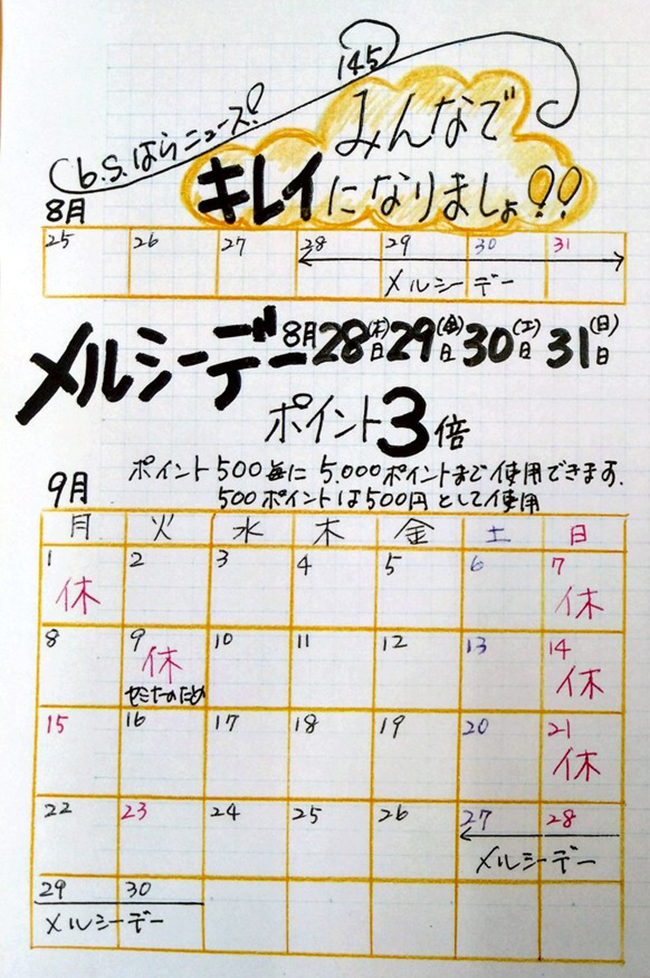 145
b.s.はらニュース!
みんなで
キレイになりましょ!!
8月
25 26 27 28 29 30 31
メルシーデー
メルシーデー 8月28日(木)29日(金)30日(土)31日(日)
ポイント3倍
ポイント500毎に5.000ポイントまで使用できます.
500ポイントは500円として使用
9月
月 火 水 木 金 土 日
1 2 3 4 5 6 7
休 休
8 9 10 11 12 13 14
休 休
セミナーのため
15 16 17 18 19 20 21
休
22 23 24 25 26 27 28
メルシーデー
29 30
メルシーデー